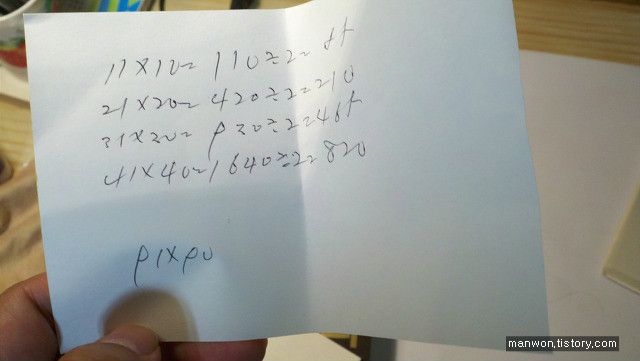 11×10=110÷2=55
21×20=420÷2=210
31×30=930÷2=465
41×40=1640÷2=820
91×90
manwon.tistory.com